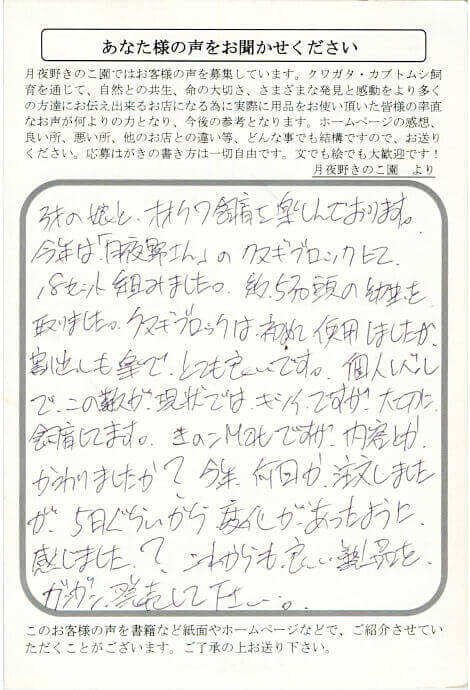 あなた様の声をお聞かせください
月夜野きのこ園ではお客様の声を募集しています。クワガタ・カブトムシ飼
育を通じて、自然との共生、命の大切さ、さまざまな発見と感動をより多く
の方達にお伝え出来るお店になる為に実際に用品をお使い頂いた皆様の率直
なお声が何よりの力となり、今後の参考となります。ホームページの感想、
良い所、悪い所、他のお店との違い等、どんな事でも結構ですので、お送り
ください。応募はがきの書き方は一切自由です。文でも絵でも大歓迎です！
月夜野きのこ園　より
3才の娘と、オオクワ飼育を楽しんでおります。
今年は「月夜野さん」のクヌギブロックにて、
18セット組みました。約570頭の幼虫を
取りました。クヌギブロックは初めて使用しましたが、
割出しも楽で、とても良いです。個人レベル
で、この数が、現状ではキツイですが、大切に
飼育してます。きのこMatですが、内容とか
かわりましたか？今年、何回か、注文しました
が、5日ぐらいから変化があったように、
感じました、？これからも良い製品を、
ガンガン発売して下さい。
このお客様の声を書籍など紙面やホームページなどで、ご紹介させてい
ただくことがございます。ご了承の上お送り下さい。